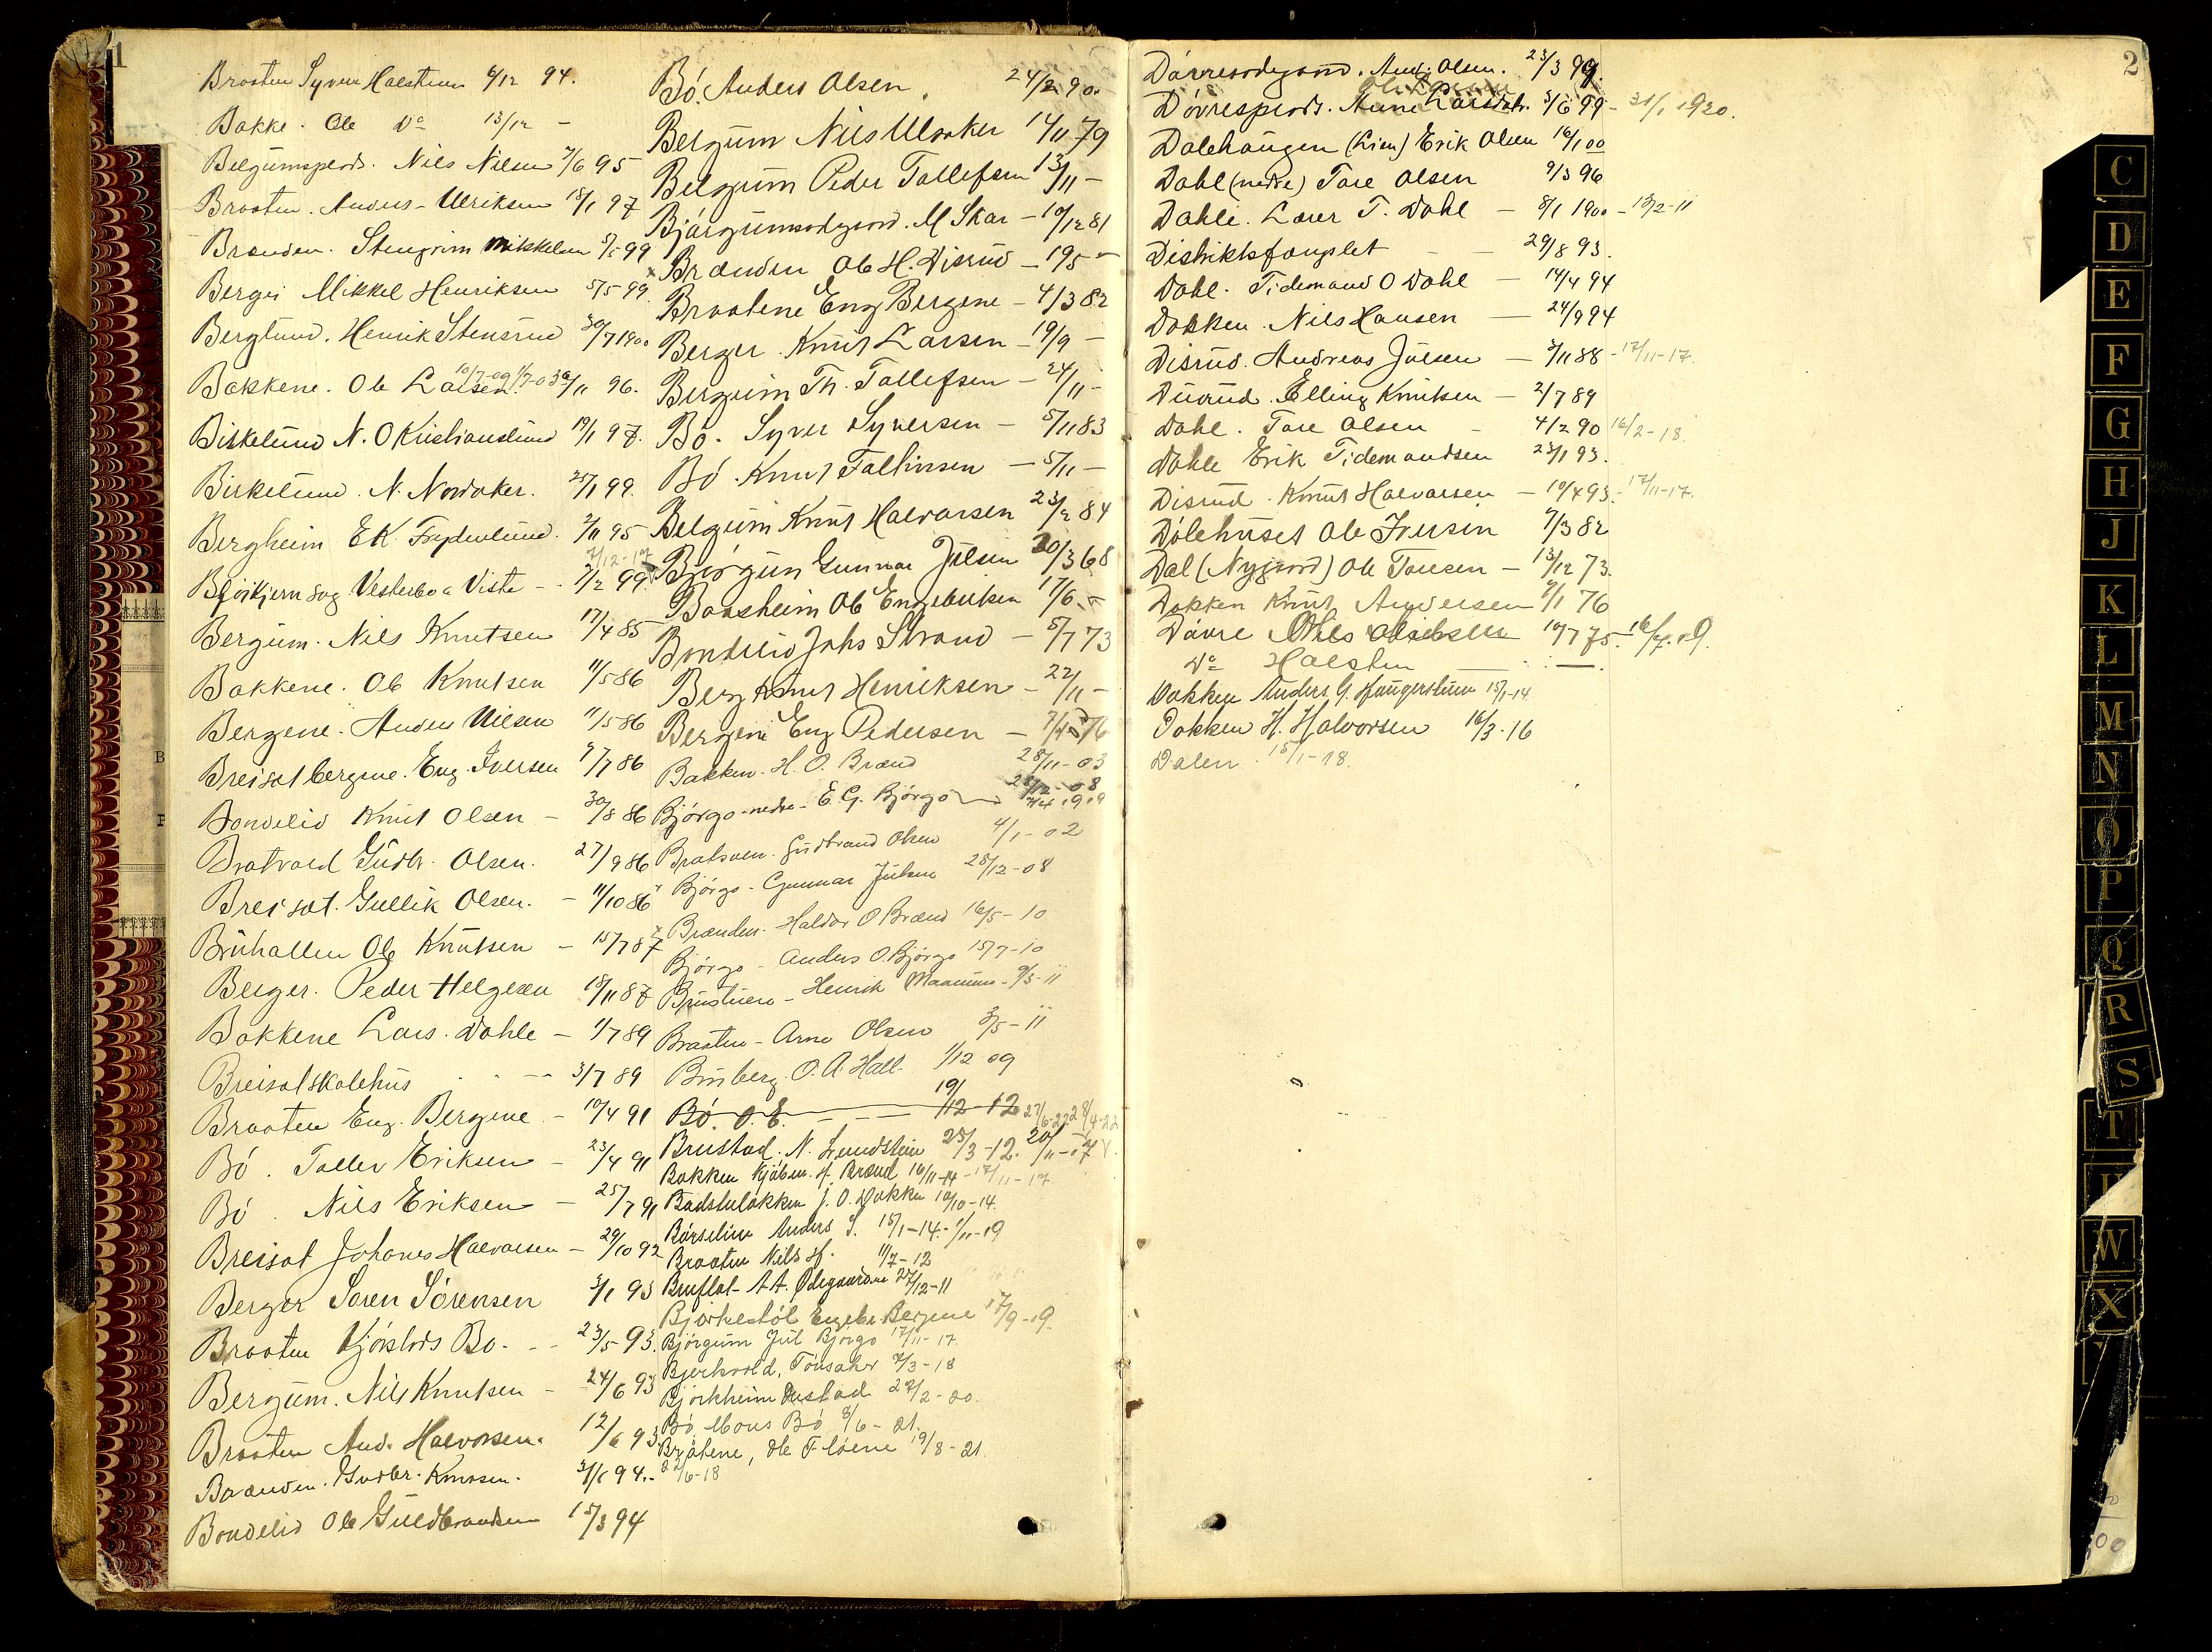 1
Braaten Syver Halsteins 6/12 94.
Bakke. Ole Do 13/12 -
Belgumsplads. Nils Nilsen 7/6 95
Braaten. Anders Ulriksen 18/1 97
Brænden. Stengrim Mikkelsen 5/5 99
Berger Mikkel Henriksen 5/5 99.
Berglund. Henrik Stensrud 30/7 1900
Bakkene. Ole Larsen. 10/7-09 96.
Birkelund N. O Kristianslund 19/1 97.
Birkelund. N. Nordaker. 25/1 99.
Bergheim E K Frydenlund. 2/11 95
Vesterbo & Viste - 2/2 99.
Bergum. Nils Knutsen 17/4 85
Bakkene. Ole Knutsen 11/5 86
Bergene. Anders Nilsen 11/5 86
Breisetbergene. Eng. Iversen 9/7 86
Bondelid Knut Olsen - 30/8 86
Bratvold Gudbr. Olsen. 27/9 86
Breiset. Gullik Olsen. - 11/10 86
Bruhallen Ole Knutsen - 15/7 87
Berger. Peder Helgesen 18/11 87
Bakkene Lars. Dahle - 1/7 89
Breiset skolehus - - 3/7 89
Braaten Eng. Bergene - 10/4 91
Bö. Tollev Eriksen - 23/4 91
Bö. Nils Eriksen - 25/7 91
Breiset Johanes Halvorsen - 29/10 92
Berger Sören Sörensen 3/1 93
Braaten Kjöstods Bö. - - 23/5 93.
Bergum. Nils Knutsen - 24/6 93
Braaten And. Halvorsen. 12/6 93
Brænden. Gudbr. Knudsen. 3/1 94.-
Bondelid Ole Guldbrandsen 15/3 94
Bö. Anders Olsen. 24/2 90.
Belgum Nils Ulsaker 14/11 79
Belgum Peder Tollefsen 13/11 -
Bjørgumsødegaard. M Skar - 10/12 81
x Brænden Ole H. Disrud - 19/5 -
Braatene Eng Bergene - 4/3 82
Berger. Knut Larsen - 19/9 -
Bergum Th. Tollefsen - 24/11 -
Bö. Syver Syversen - 5/11 83
Bö. Knut Tollinsen - 5/11 -
Belgum Knut Halvorsen 23/2 84
Børgum Gunnar Julsen 20/3 68
Baasheim Ole Engebretsen 17/6 -
Bondelid Johs Strand - 5/7 73
Berg Knut Henriksen - 22/11 -
Bergene Eng Pedersen - 76
Bakken. H. O. Brænd 28/11-03
Bjørgo nedre - E. G. Bjørgo
Bratsveen. Gudbrand Olsen 4/1-02
Bjørgo - Gunnar Julsen 28/12-08
x Brænden. Haldor O Brænd 16/5-10
Bjørgo - Anders O. Bjørgo 15/7-10
Brustuen - Henrik Maanum - 9/3-11
Braaten - Arne Olsen 3/5-11
Bruberg. O. A. Hall. 1/12 09
Bö. O. E. - - 19/12-12
Brustad. N. Lundstein 25/3-12.
Bakken Kjöbm. H. Brænd 16/11-14 - 17/11-17
Badstuløkken J. O. Dokken 10/10-14.
Anders S. 15/1-14. 1/11-19
Braaten Nils H. 11/7-12
Bruflat - A A. Ødegaarden 27/12-11
Bjørkestøl Engebr Bergene 17/9-19.
Bjørgum Jul Bjørgo 17/11-17
Bjerkvold, Tonsaker 7/3-18
Bjørkheim 27/2-20.
Bö Mons Bö 8/6-21.
Bråtene, Ole Fløene 19/8-21.
2
Ødegaard. And: Olsen. 23/3 99.
Døvresplads. Anne Larsdtr. 3/6 99 - 31/1 1920.
Dalehaugen (Lien) Erik Olsen 16/1 00
Dahl (nedre) Tore Olsen 9/3 96
Dahle. Lærer T. Dahl - 8/1 1900 - 13/2-11
Distriktsfængslet - - 29/8 93.
Dahl. Tidemand O Dahl - 14/4 94
Dokken. Nils Hansen - 24/9 94
Disrud. Andreas Julsen - 3/11 88 - 17/11-17.
Elling Knutsen - 2/7 89
Dahl. Tore Olsen - 4/2 90 16/2-18.
Dahle Erik Tidemandsen 23/1 93.
Disrud. Knut Halvorsen - 10/4 93. - 17/11-17.
Dølehuset Ole Iversen 7/3 82
Dal (Nygaard) Ole Toresen - 13/12 73.
Dokken Knut Andersen 9/1 76
Døvre Nils 10/7 75. - 16/7.09.
Do Halsten - . -.
Dokken Anders G. Haugerstuen 15/1-14.
Dokken H. Halvorsen 16/3.16
Dalen. 15/1-18.
C
D
E
F
G
H
J
K
L
M
N
O
P
Q
R
S
T
W
X